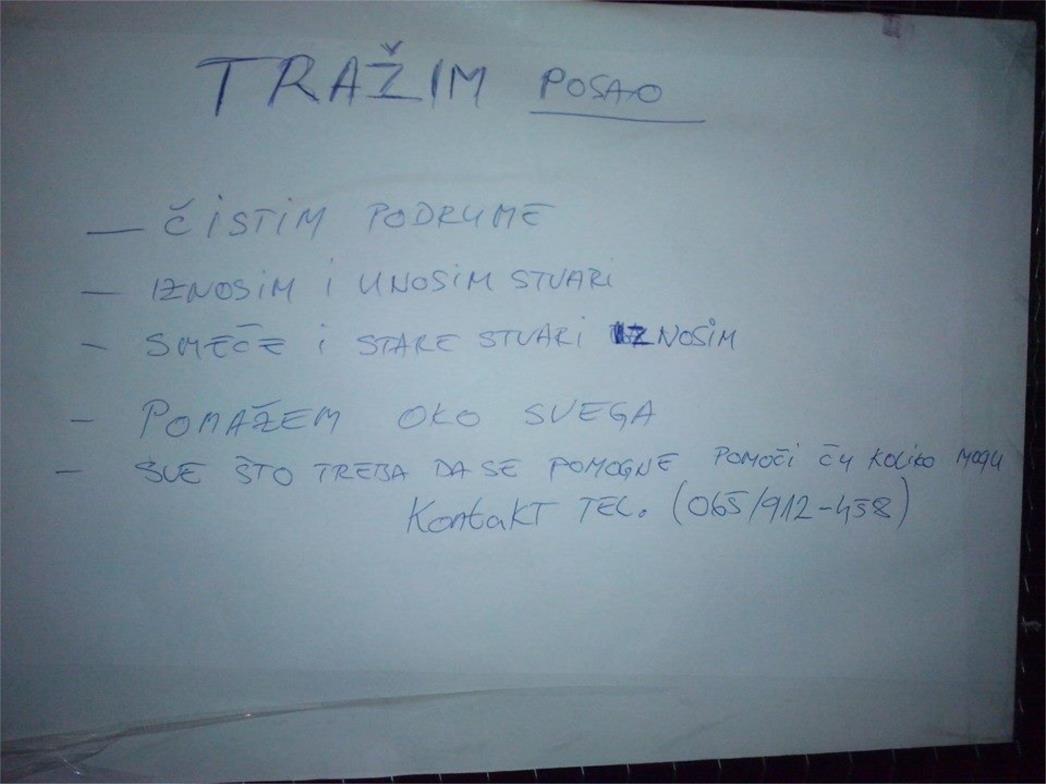 TRAŽIM POSAO
— ČISTIM PODRUME
— IZNOSIM I UNOSIM STVARI
- SMEČE I STARE STVARI IZNOSIM
- POMAŽEM OKO SVEGA
- SVE ŠTO TREBA DA SE POMOGNE POMOČI ČU KOLIKO MOGU
KontaKT TEL. (065/912-458)